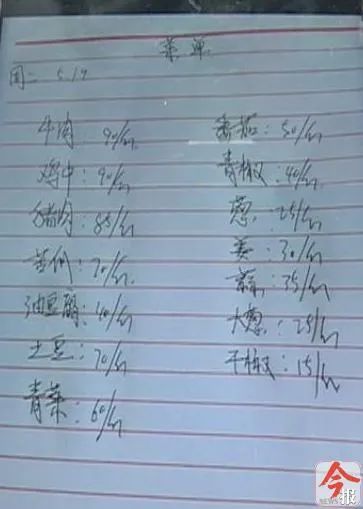 菜单
周二 5.19
牛肉:90/斤
鸡中:90/斤
猪肉:85/斤
苦瓜:70/斤
油豆腐:40/斤
土豆:70/斤
青菜:60/斤
番茄:50/斤
青椒:40/斤
葱:25/斤
姜:30/斤
蒜:35/斤
大葱:25/斤
干椒:15/斤
今
NEWS 报